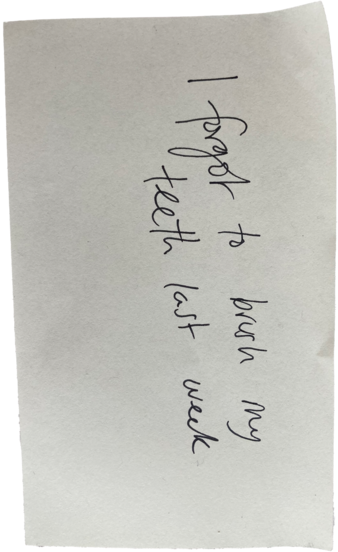 I forgot to brush my
teeth last week